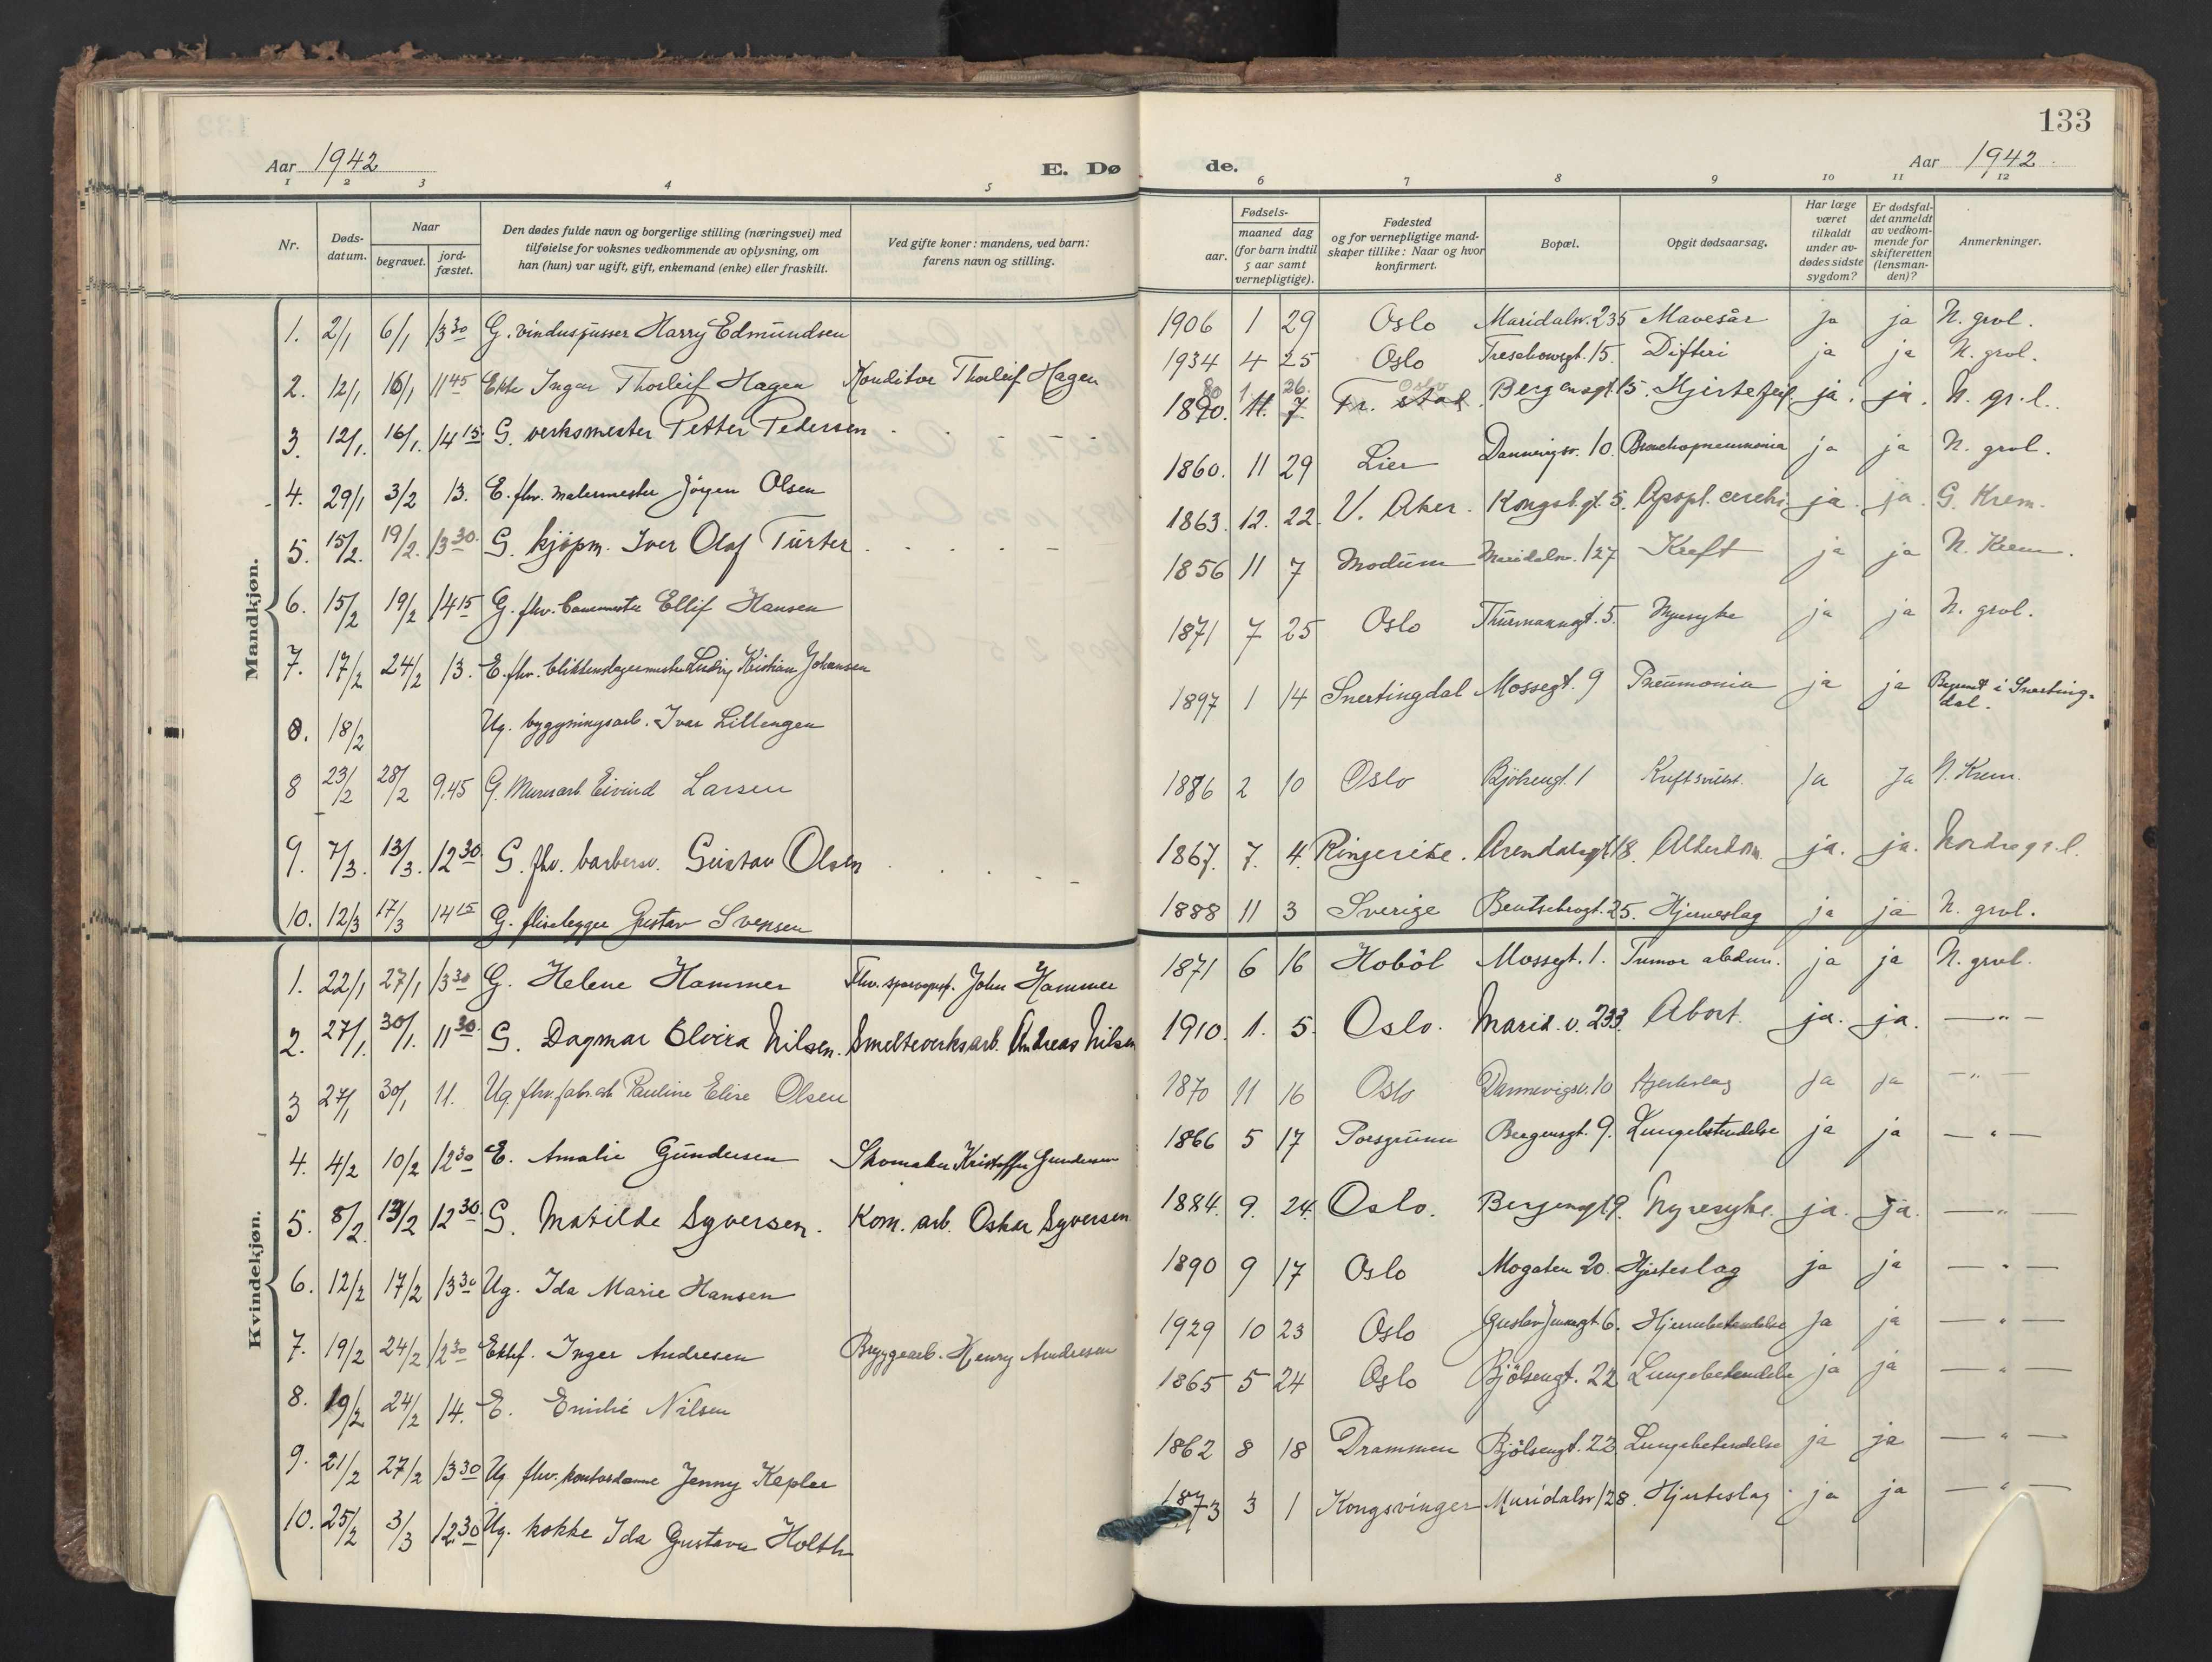 133
Aar 1942
E. Dø
de.
Aar 1942
1 2 3 4 5 6 7 8 9 10 11 12
Nr.
Døds-
datum.
Naar
begravet.
jord-
fæstet.
Den dødes fulde navn og borgerlige stilling (næringsvei) med
tilføielse for voksnes vedkommende av oplysning, om
han (hun) var ugift, gift, enkemand (enke) eller fraskilt.
Ved gifte koner: mandens, ved barn:
farens navn og stilling.
Fødsels-
aar.
maaned dag
(for barn indtil
5 aar samt
vernepligtige).
Fødested
og for vernepligtige mand-
skaper tillike: Naar og hvor
konfirmert.
Bopæl.
Opgit dødsaarsag.
Har læge
været
tilkaldt
under av-
dødes sidste
sygdom?
Er dødsfal-
det anmeldt
av vedkom-
mende for
skifteretten
(lensman-
den)?
Anmerkninger.
Mandkjøn.
1. 2/1 6/1 13 30 G. vinduspusser Harry Edmundsen 1906 1 29 Oslo Maridalsv. 235 Mavesår ja ja N. grvl.
2. 12/1 16/1 11 45 Ekte Ingar Thorleif Hagen Konditor Thorleif Hagen 1934 4 25 Oslo Treschowsgt. 15. Difteri ja ja N. grvl.
80 1 26. Oslo
3. 12/1. 16/1. 14 15. G. verksmester Petter Pedersen 1890. 11. 7. Fr. stad. Bergensgt. 15. Hjertefeil. ja. ja. N. gr.l.
4. 29/1 3/2 13. E. fhv. malermester Jörgen Olsen 1860. 11 29 Lier Dannevigsv. 10. Bronchopneumonia ja ja N. grvl.
5. 15/2. 19/2. 13 30. G. kjøpm. Iver Olaf Turter 1863. 12. 22. V. Aker. Kongsb. gt. 5. Apopl. cerebri ja. ja. G. Krem.
6. 15/2 19/2 14 15 G. fhv. Ellif Hansen 1856 11 7 Modum Maridalsv. 127 Kreft ja ja N. Krem.
7. 17/2 24/2 13. E. fhv. blikkenslagermester Ludvig Kristian Johansen 1871 7 25 Oslo Thurmannsgt. 5. Nyresyke ja ja N. grvl.
0. 18/2 Ug. byggningsarb. Ivar Lillengen 1897 1 14 Snertingdal Mossegt. 9 Pneumonia ja ja Begravet i Snerting-
dal.
8 23/2 28/2 9.45 G. Murerarb. Eivind Larsen 1886 2 10 Oslo Bjölsengt. 1 Kreftsvulst. Ja Ja N. Krem.
9. 7/3. 13/3. 12 30. G. fhv. barbersv. Gustav Olsen 1867. 7. 4. Ringerike. Arendalsgt. 18. Alderdom. ja. ja. Nordre gr.l.
10. 12/3 17/3 14 15 G. fliselegger Gustav Svensen 1888 11 3 Sverige Bentsebrogt. 25. Hjerneslag ja ja N. grvl.
Kvindekjøn.
1. 22/1 27/1 13 30 G. Helene Hammer Fhv. sporvognsf. John Hammer 1871 6 16 Hobøl Mossegt. 1. Tumor abdom. ja ja N. grvl.
2. 27/1. 30/1. 11 30. G. Dagmar Elvira Nilsen. Smelteverksarb. Andreas Nilsen 1910. 1. 5. Oslo. Marid. v. 233. Abort. ja. ja. — " —
3 27/1 30/1 11. Ug. fhv. fabr. arb. Pauline Elise Olsen 1870 11 16 Oslo Dannevigsv. 10 Hjerteslag Ja Ja — " —
4. 4/2 10/2 12 30 E. Amalie Gundersen Skomaker Kristoffer Gundersen 1866 5 17 Porsgrunn Bergensgt. 9. Lungebetendelse ja ja — " —
5. 8/2. 13/2 12 30. G. Matilde Syversen. Kom. arb. Oskar Syversen 1884. 9. 24. Oslo. Bergensgt. 9. Nyresyke. ja. ja. — " —
6. 12/2 17/2 13 30 Ug. Ida Marie Hansen 1890 9 17 Oslo Mogaten 20. Hjerteslag ja ja — " —
7. 19/2 24/2 12 30 Ektef. Inger Andresen Bryggearb. Henry Andresen 1929 10 23 Oslo Gustav Jensensgt. 6. Hjernebetendelse Ja ja — " —
8. 19/2 24/2 14. E. Emilie Nilsen 1865 5 24 Oslo Bjölsengt. 22 Lungebetendelse ja ja — " —
9. 21/2 27/2 13 30 Ug. fhv. kontordame Jenny Kepler 1862 8 18 Drammen Bjölsengt. 22 Lungebetendelse ja ja — " —
10. 25/2 3/3 12 30 Ug. kokke Ida Gustava Holth 1873 3 1 Kongsvinger Maridalsv. 128. Hjerteslag ja ja — " —